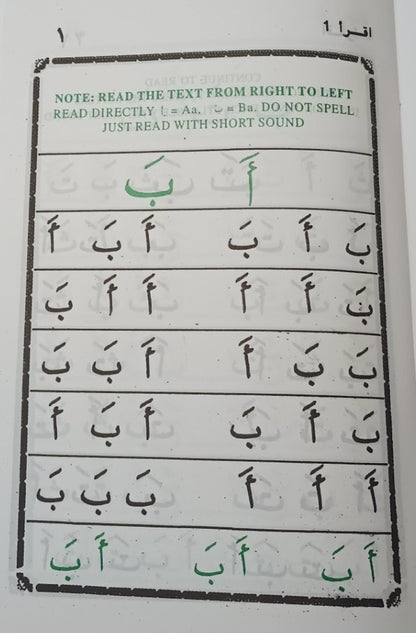 اقرا 1 ١
NOTE: READ THE TEXT FROM RIGHT TO LEFT
READ DIRECTLY أَ = Aa, بَ = Ba. DO NOT SPELL
JUST READ WITH SHORT SOUND
أَ بَ
بَ أَ بَ أَ بَ أَ
بَ أَ أَ أَ أَ بَ
بَ بَ أَ أَ بَ بَ
بَ أَ بَ أَ بَ أَ
أَ أَ أَ بَ بَ بَ
أَ بَ أَ بَ أَ بَ